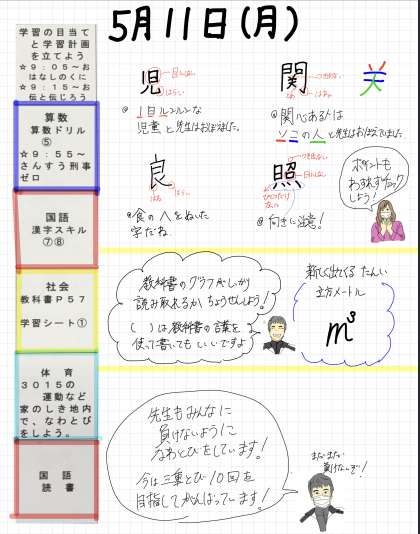 5月11日(月)
学習の目当て
と学習計画
を立てよう
☆9:05~お
はなしのくに
☆9:15~お
伝と伝じろう
算数
算数ドリル
⑤
☆9:55~
さんすう刑事
ゼロ
国語
漢字スキル
⑦⑧
社会
教科書P57
学習シート①
体育
3015の
運動など
家のしき地内
で、なわとび
をしよう。
国語
読書
児
はらい
児童と先生はおぼえました。
関
つき出ない
はね
はらい
関心ある人は
ソミの人と先生はおぼえてました。
良
はね
はらい
食の人をぬいた
字だね。
照
つき出ない
向きに注意!
ポイントも
わすれずチェック
しよう!
教科書のグラフがしっかり
読み取れるかちょうせんしよう!
( )は教科書の言葉を
使って書いてもいいですよ
新しく出てくるたんい
立方メートル
m³
先生もみんなに
負けないように
なわとびをしています!
今は三重とび10回を
目指してがんばっています!
まだまだ
負けないぞ!